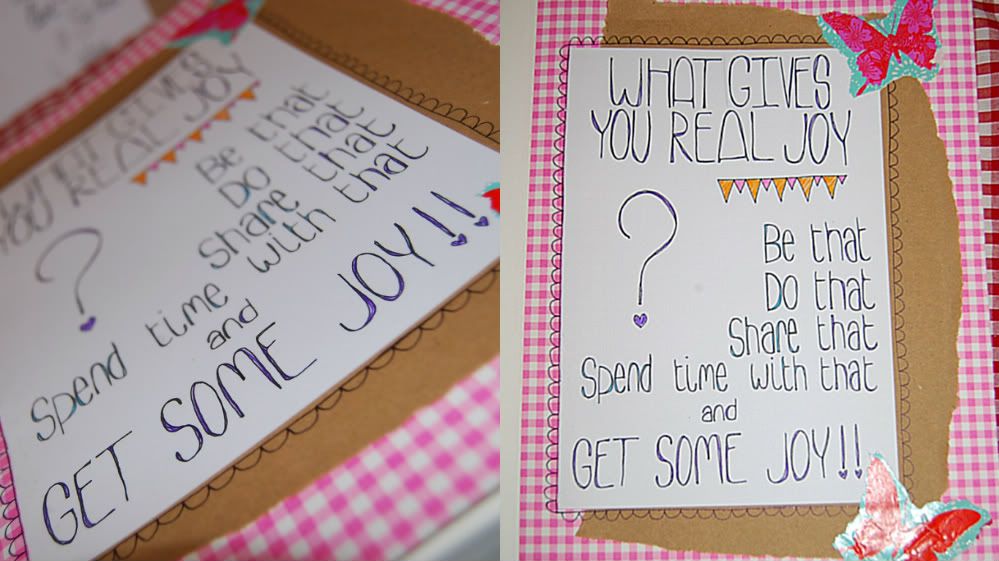 WHAT GIVES
YOU REAL JOY
?
Be that
Do that
Share that
Spend time with that
and
GET SOME JOY!!
WHAT GIVES
YOU REAL JOY
?
Be that
Do that
Share that
Spend time with that
and
GET SOME JOY!!